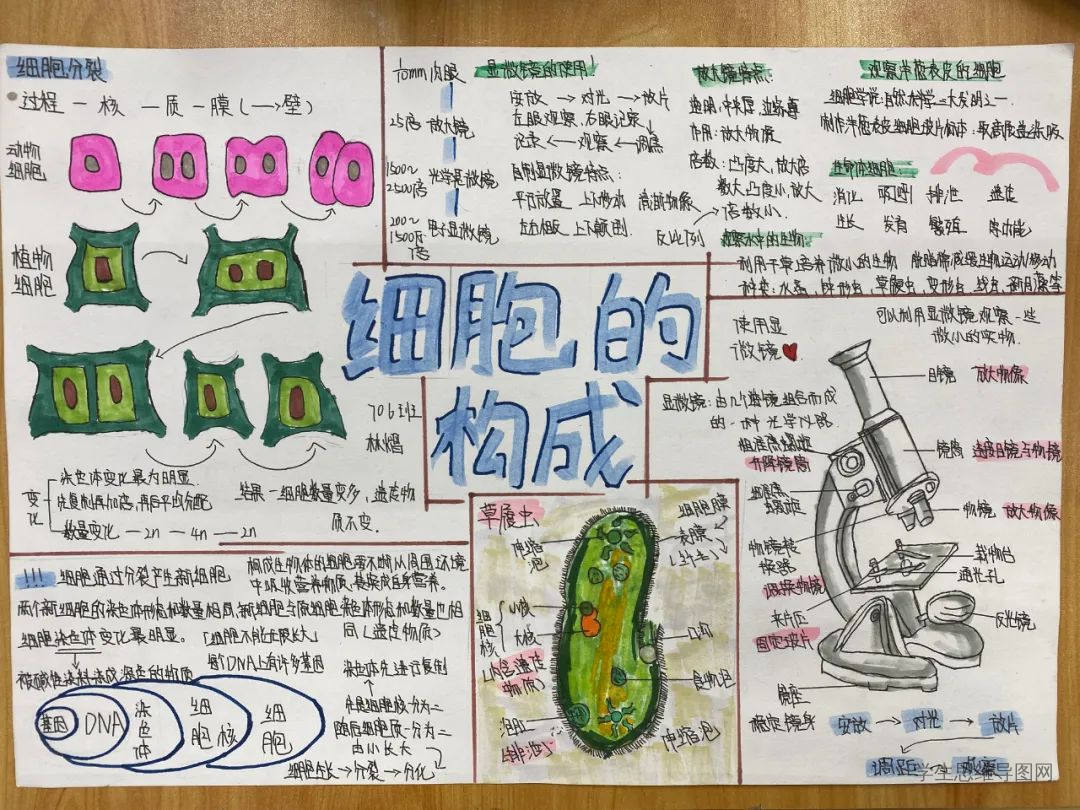 细胞分裂
过程 一 核 一 质 一 膜 (一→壁)
动物
细胞
植物
细胞
706班
变化
染色体变化最为明显.
先复制再加倍,再后平均分配
数量变化 — 2n — 4n — 2n
结果一细胞数量变多,遗传物
质不变.
肉眼
25倍 放大镜
1500~
2500倍
光学显微镜
200~
1500万
倍
电子显微镜
显微镜的使用
安放 → 对光 → 放片
左眼观察,右眼记录
记录 ← 观察 ← 调焦
自制显微镜特点:
平行放置 上下移动 清晰物像
左右相反 上下颠倒. 反比例
放大镜特点:
透明,中央厚,边缘薄
作用:放大物像
倍数:凸度大,放大倍
数大,凸度小,放大
倍数小.
观察洋葱表皮的细胞
细胞学说:自然科学三大发明之一.
生命体细胞:
消化 呼吸 排泄 遗传
生长 发育 繁殖 等功能
观察水中的生物
可以利用显微镜观察一些
微小的实物.
细胞的
构成
使用显
微镜
显微镜:由几个透镜组合而成
的一种光学仪器.
粗准焦螺旋
升降镜筒
细准焦
螺旋
物镜转
换器
调换物镜
夹片压
固定玻片
镜座
稳定镜身
目镜 放大物像
镜筒 连接目镜与物镜
物镜 放大物像
载物台
通光孔
反光镜
安放 → 对光 → 放片
调距 → 观察
草履虫
伸缩
泡
细胞核
小核
大核
(内含遗传
物质)
细胞膜
表膜
口沟
食物泡
伸缩泡
!!! 细胞通过分裂产生新细胞
构成生物体的细胞要不断从周围环境
中吸收营养物质,
两个新细胞的染色体形态和数量相同,新细胞与原细胞染色体形态和数量也相
同(遗传物质)
细胞染色体变化最明显. 「细胞不能无限长大」
被碱性染料染成深色的物质
每个DNA上有许多基因
基因 DNA 染色体 细胞核 细胞
染色体先进行复制
先是细胞核一分为二
随后细胞质一分为二
由小长大
细胞生长→分裂→分化
学生思维导图网